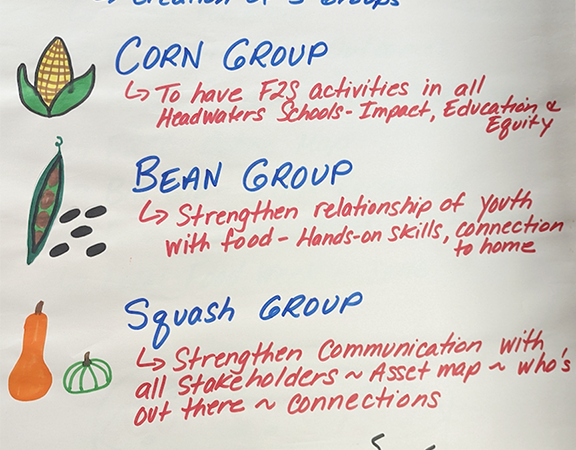 Creation of 3 Groups
CORN GROUP
↳ To have F2S activities in all
Headwaters Schools - Impact, Education &
Equity
BEAN GROUP
↳ Strengthen relationship of youth
with food - Hands-on skills, connection
to home
Squash GROUP
↳ Strengthen Communication with
all Stakeholders ~ Asset map ~ who's
out there ~ connections